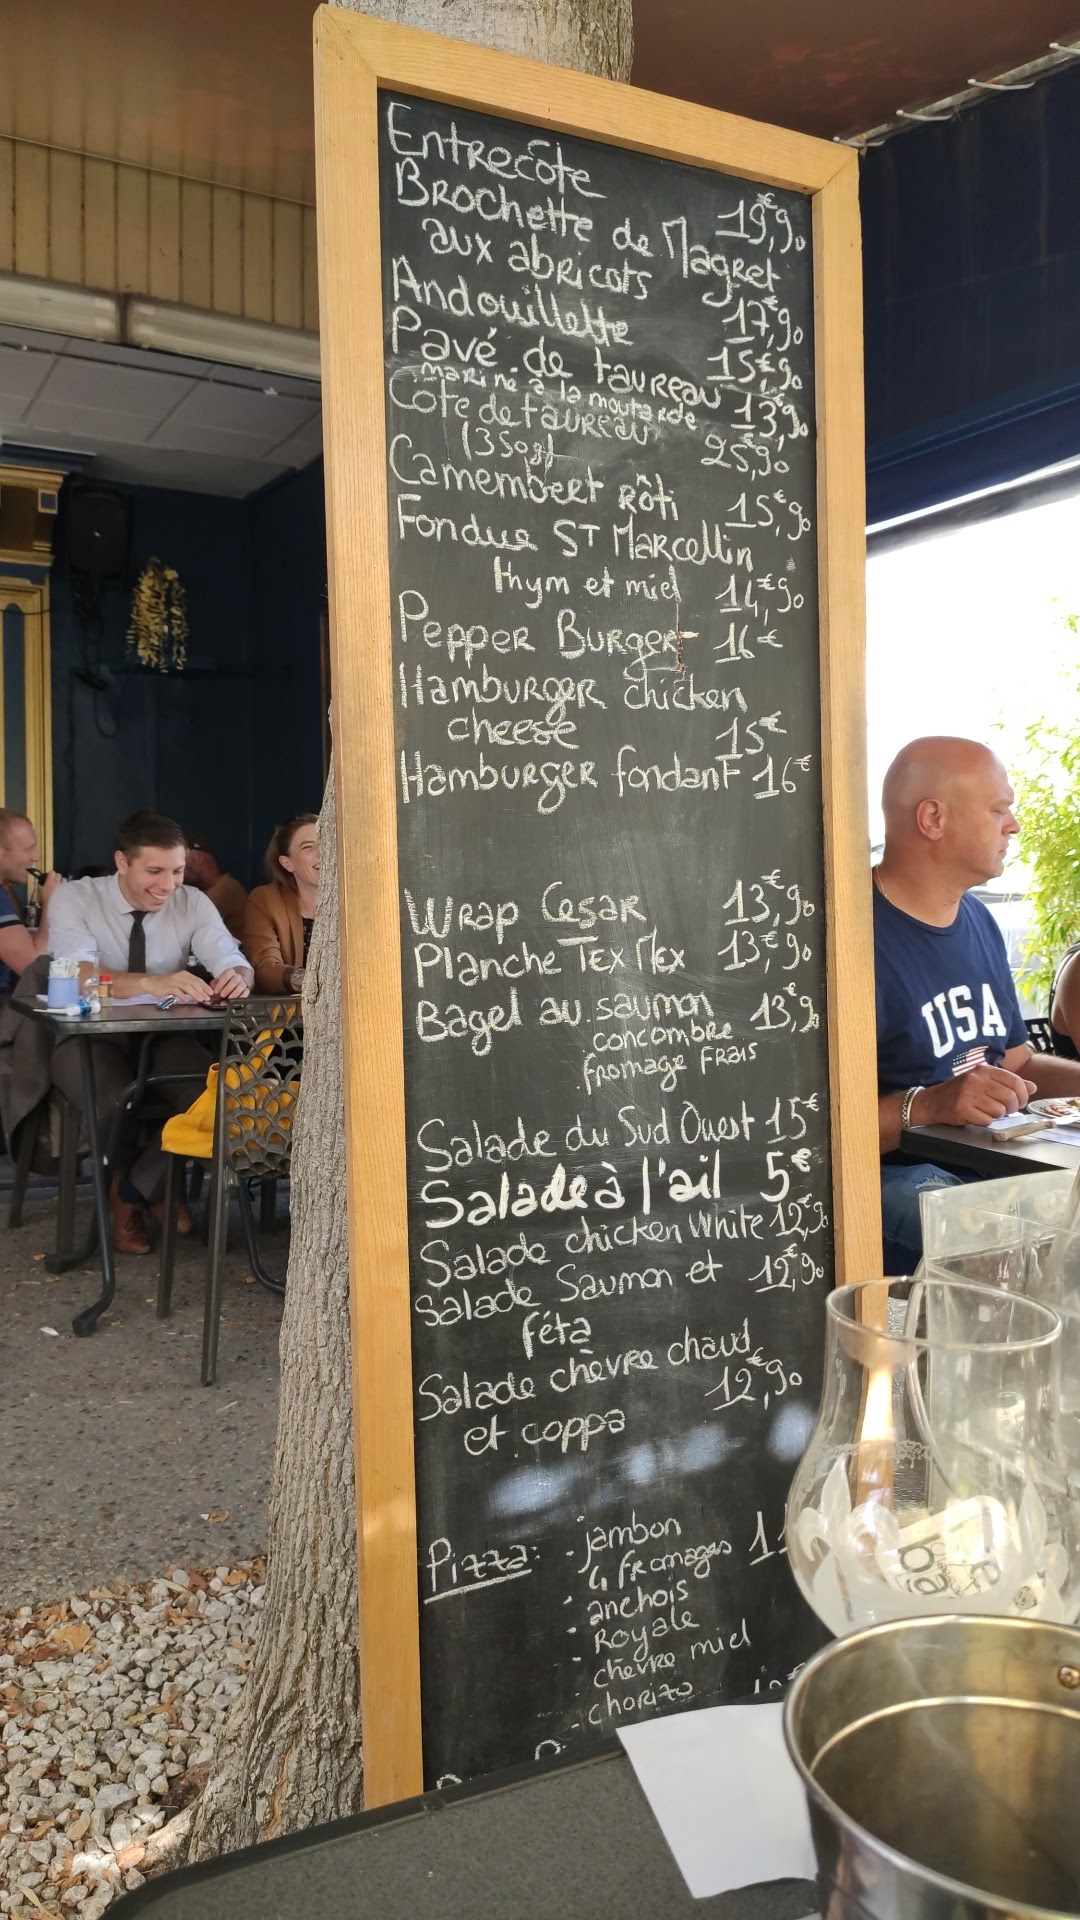 Entrecôte 19,€90
Brochette de Magret
aux abricots 17,€90
Andouillette 15,€90
Pavé de taureau 13,€90
mariné à la moutarde
Côte de taureau 25,€90
(350g)
Camembert rôti 15,€90
Fondue ST Marcellin
thym et miel 14,€90
Pepper Burger 16€
Hamburger chicken
cheese 15€
Hamburger fondant 16€
Wrap Cesar 13,€90
Planche Tex Mex 13,€90
Bagel au saumon 13,€90
concombre
fromage frais
Salade du Sud Ouest 15€
Salade à l'ail 5€
Salade chicken White 12,€90
Salade Saumon et 12,€90
féta
Salade chèvre chaud
12,€90
et coppa
Pizza: - jambon
4 fromages
- anchois
- Royale
- chèvre miel
- chorizo
USA